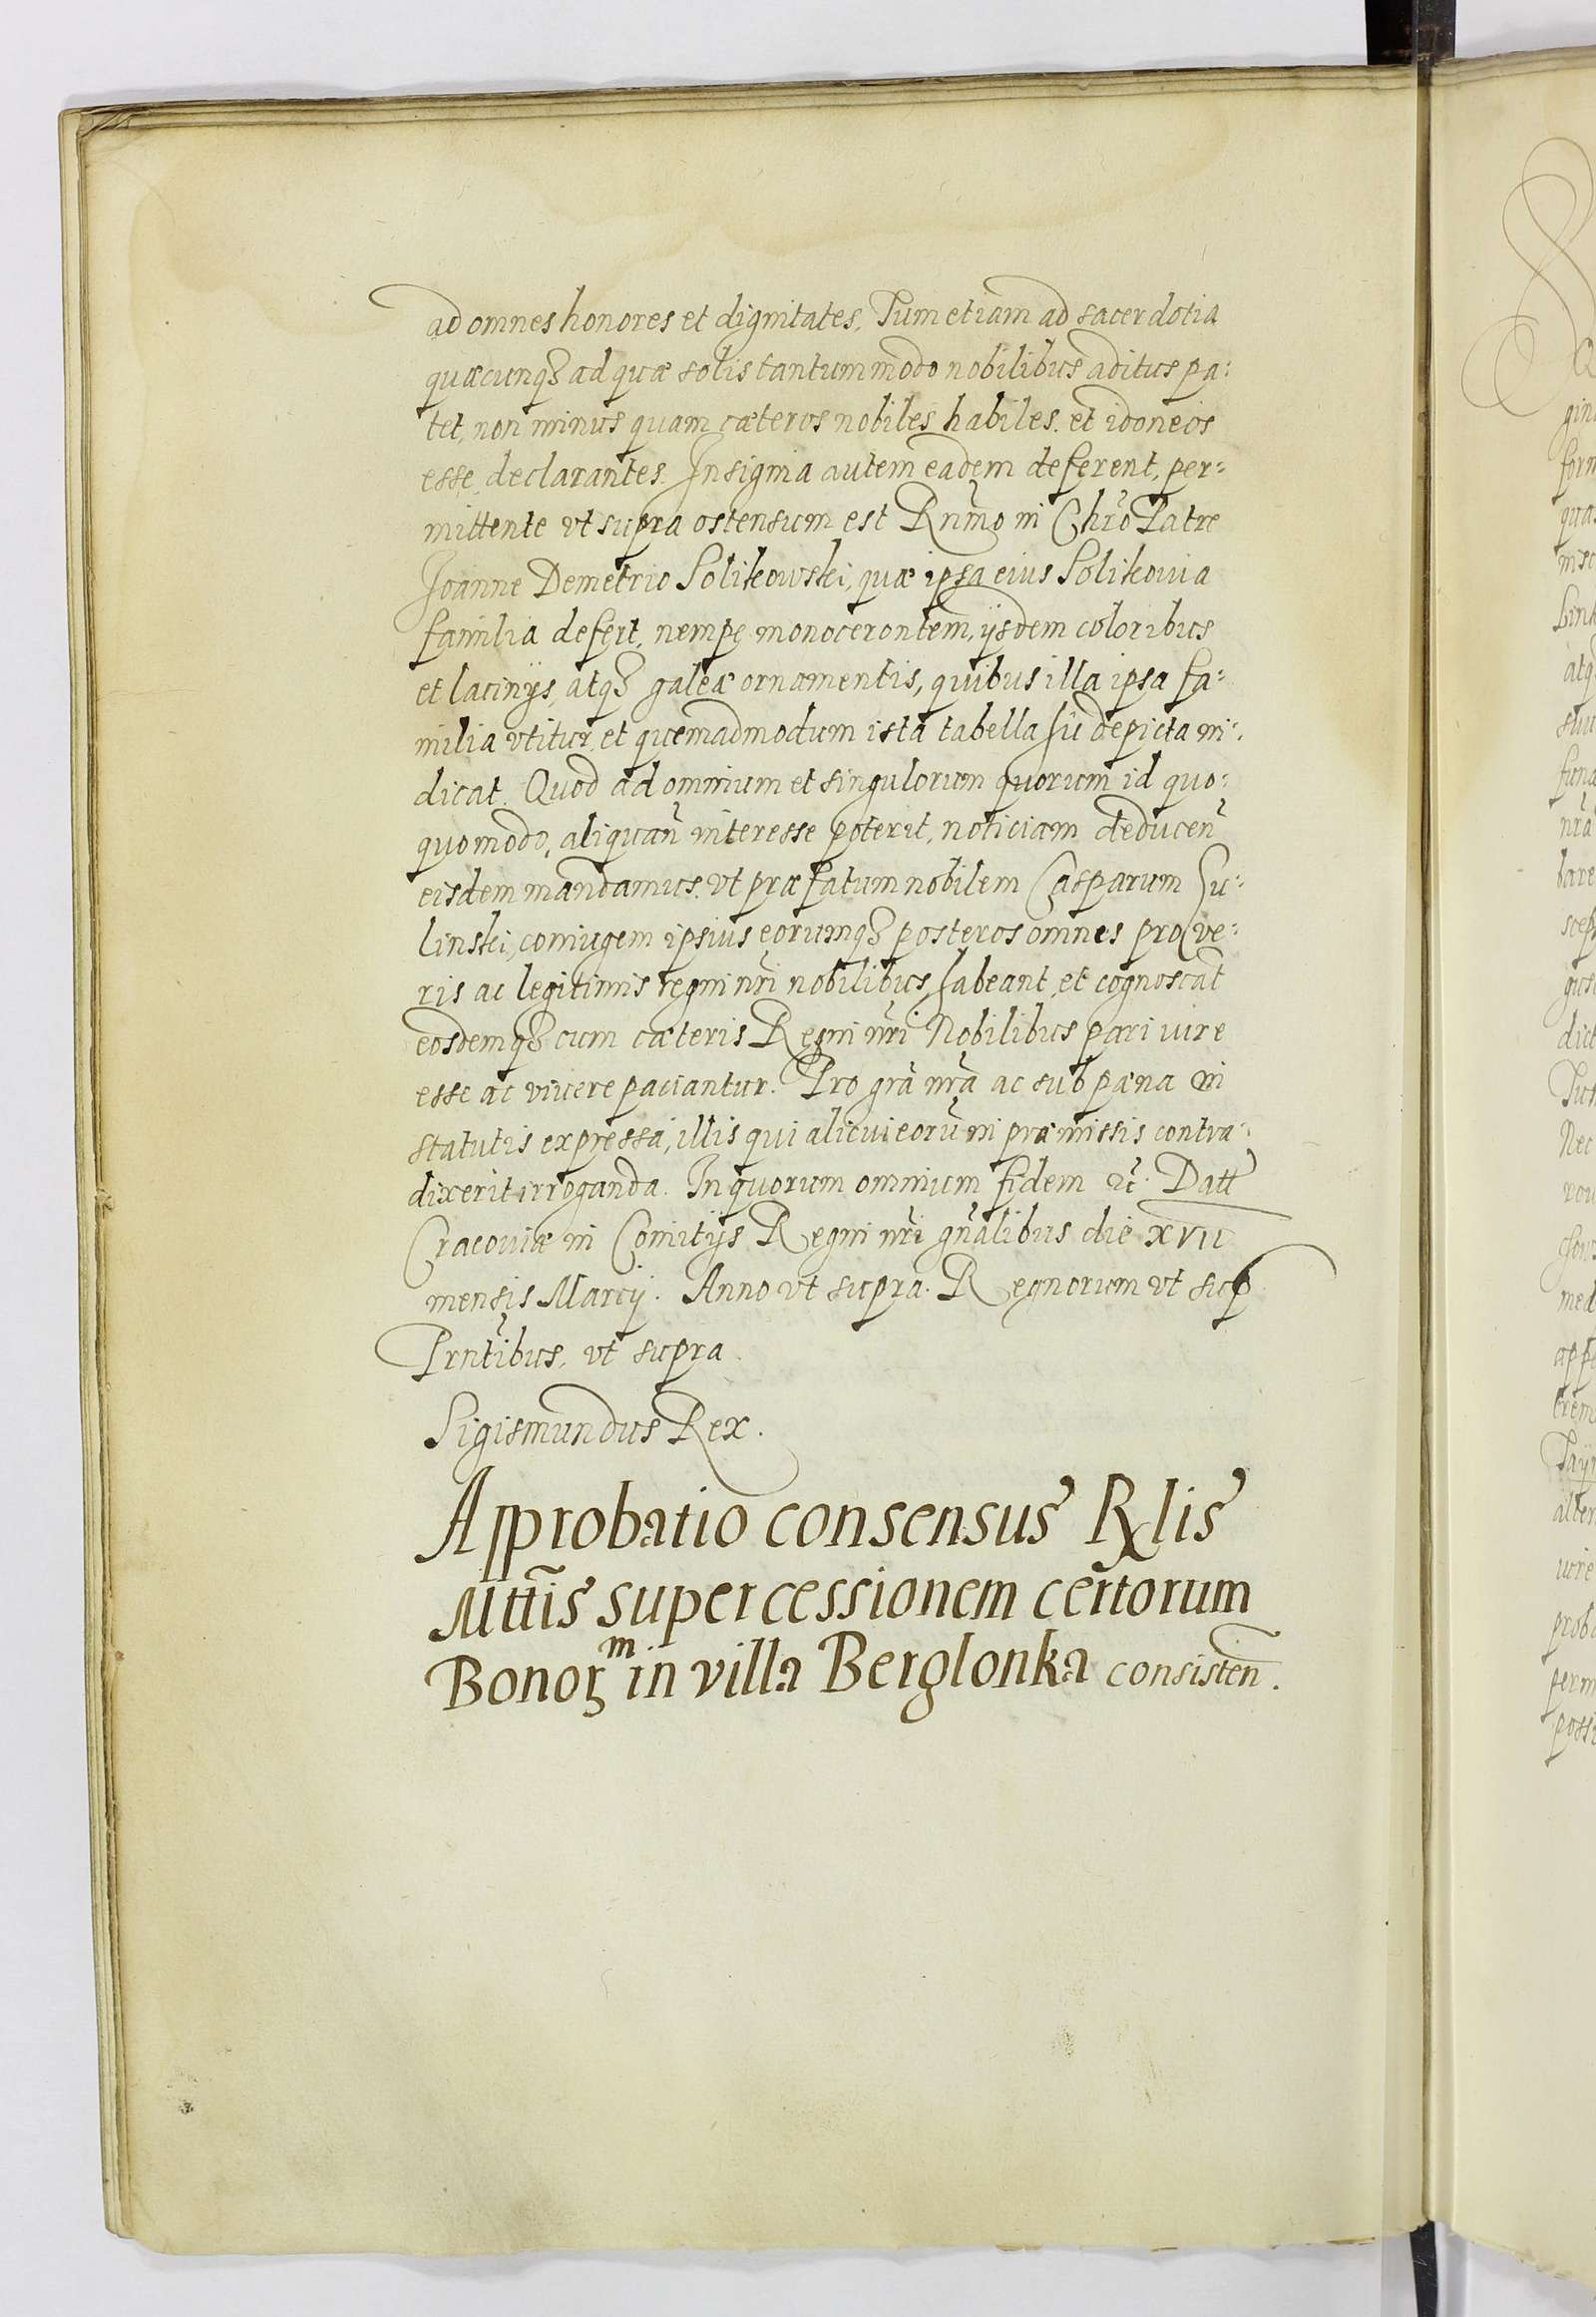 ad omnes honores et dignitates, Tum etiam ad sacerdotia
quæcunqꝫ ad quæ solis tantummodo nobilibus aditus pa:
tet, non minus quam cæteros nobiles habiles et idoneos
esse declarantes. Insignia autem eadem deferent, per:
mittente vt supra ostensum est Rn̄mo in Chr̄o Patre
Joanne Demetrio Solikowski, quæ ipsa eius Solikouia
familia defert, nempe monocerontem, ijsdem coloribus
et lacinijs, atqꝫ galeæ ornamentis, quibus illa ipsa fa:
milia vtitur, et quemadmodum ista tabella hic depicta in:
dicat. Quod ad omnium et singulorum quorum id quo:
quomodo, aliquan̄ interesse poterit, noticiam deducen̄
eisdem mandamus, vt præfatum nobilem Casparum Su:
linski, coniugem ipsius eorumqꝫ posteros omnes pro ve:
ris ac legitimis regni nr̄i nobilibus habeant et cognoscāt
eosdemqꝫ cum cæteris Regni nr̄i Nobilibus pari iure
esse ac viuere paciantur. Pro gr̄a nr̄a ac sub pæna in
statutis expressa, illis qui alicui eorū in præmissis contra:
dixerit irroganda. In quorum omnium fidem ꝛc̄. Datt
Cracouiæ in Comitijs Regni nr̄i gn̄alibus die XVII
mensis Marcij. Anno vt supra. Regnorum vt sup
Prn̄tibus, vt supra.
Sigismundus Rex.
Approbatio consensus Rlis
Mttis super cessionem certorum
Bonoꝝ m in villa Berglonka consisten̄.